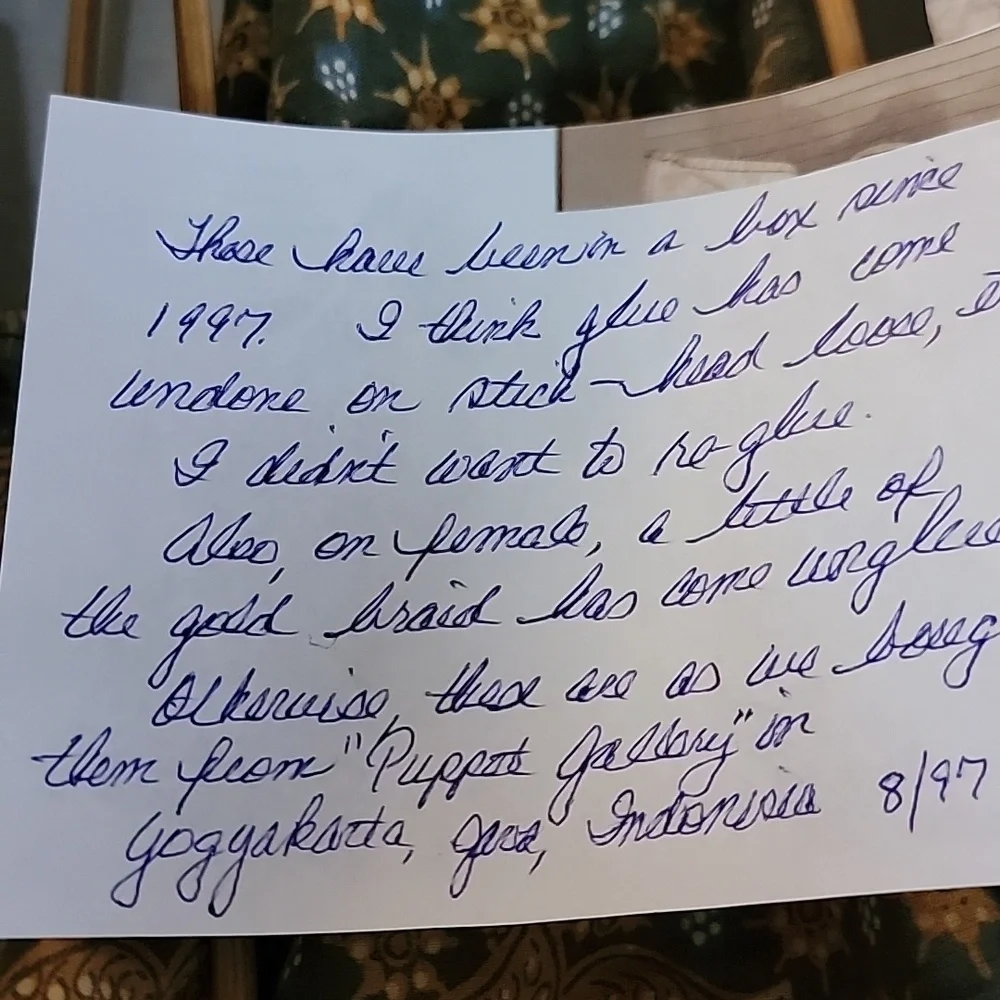 These have been in a box since
1997. I think glue has come
undone on stick - head loose,
I didn't want to re-glue.
Also, on female, a little of
the gold braid has come unglue
Otherwise, these are as we boug
them from "Puppet Gallery" in
Yogyakarta, Java, Indonesia 8/97